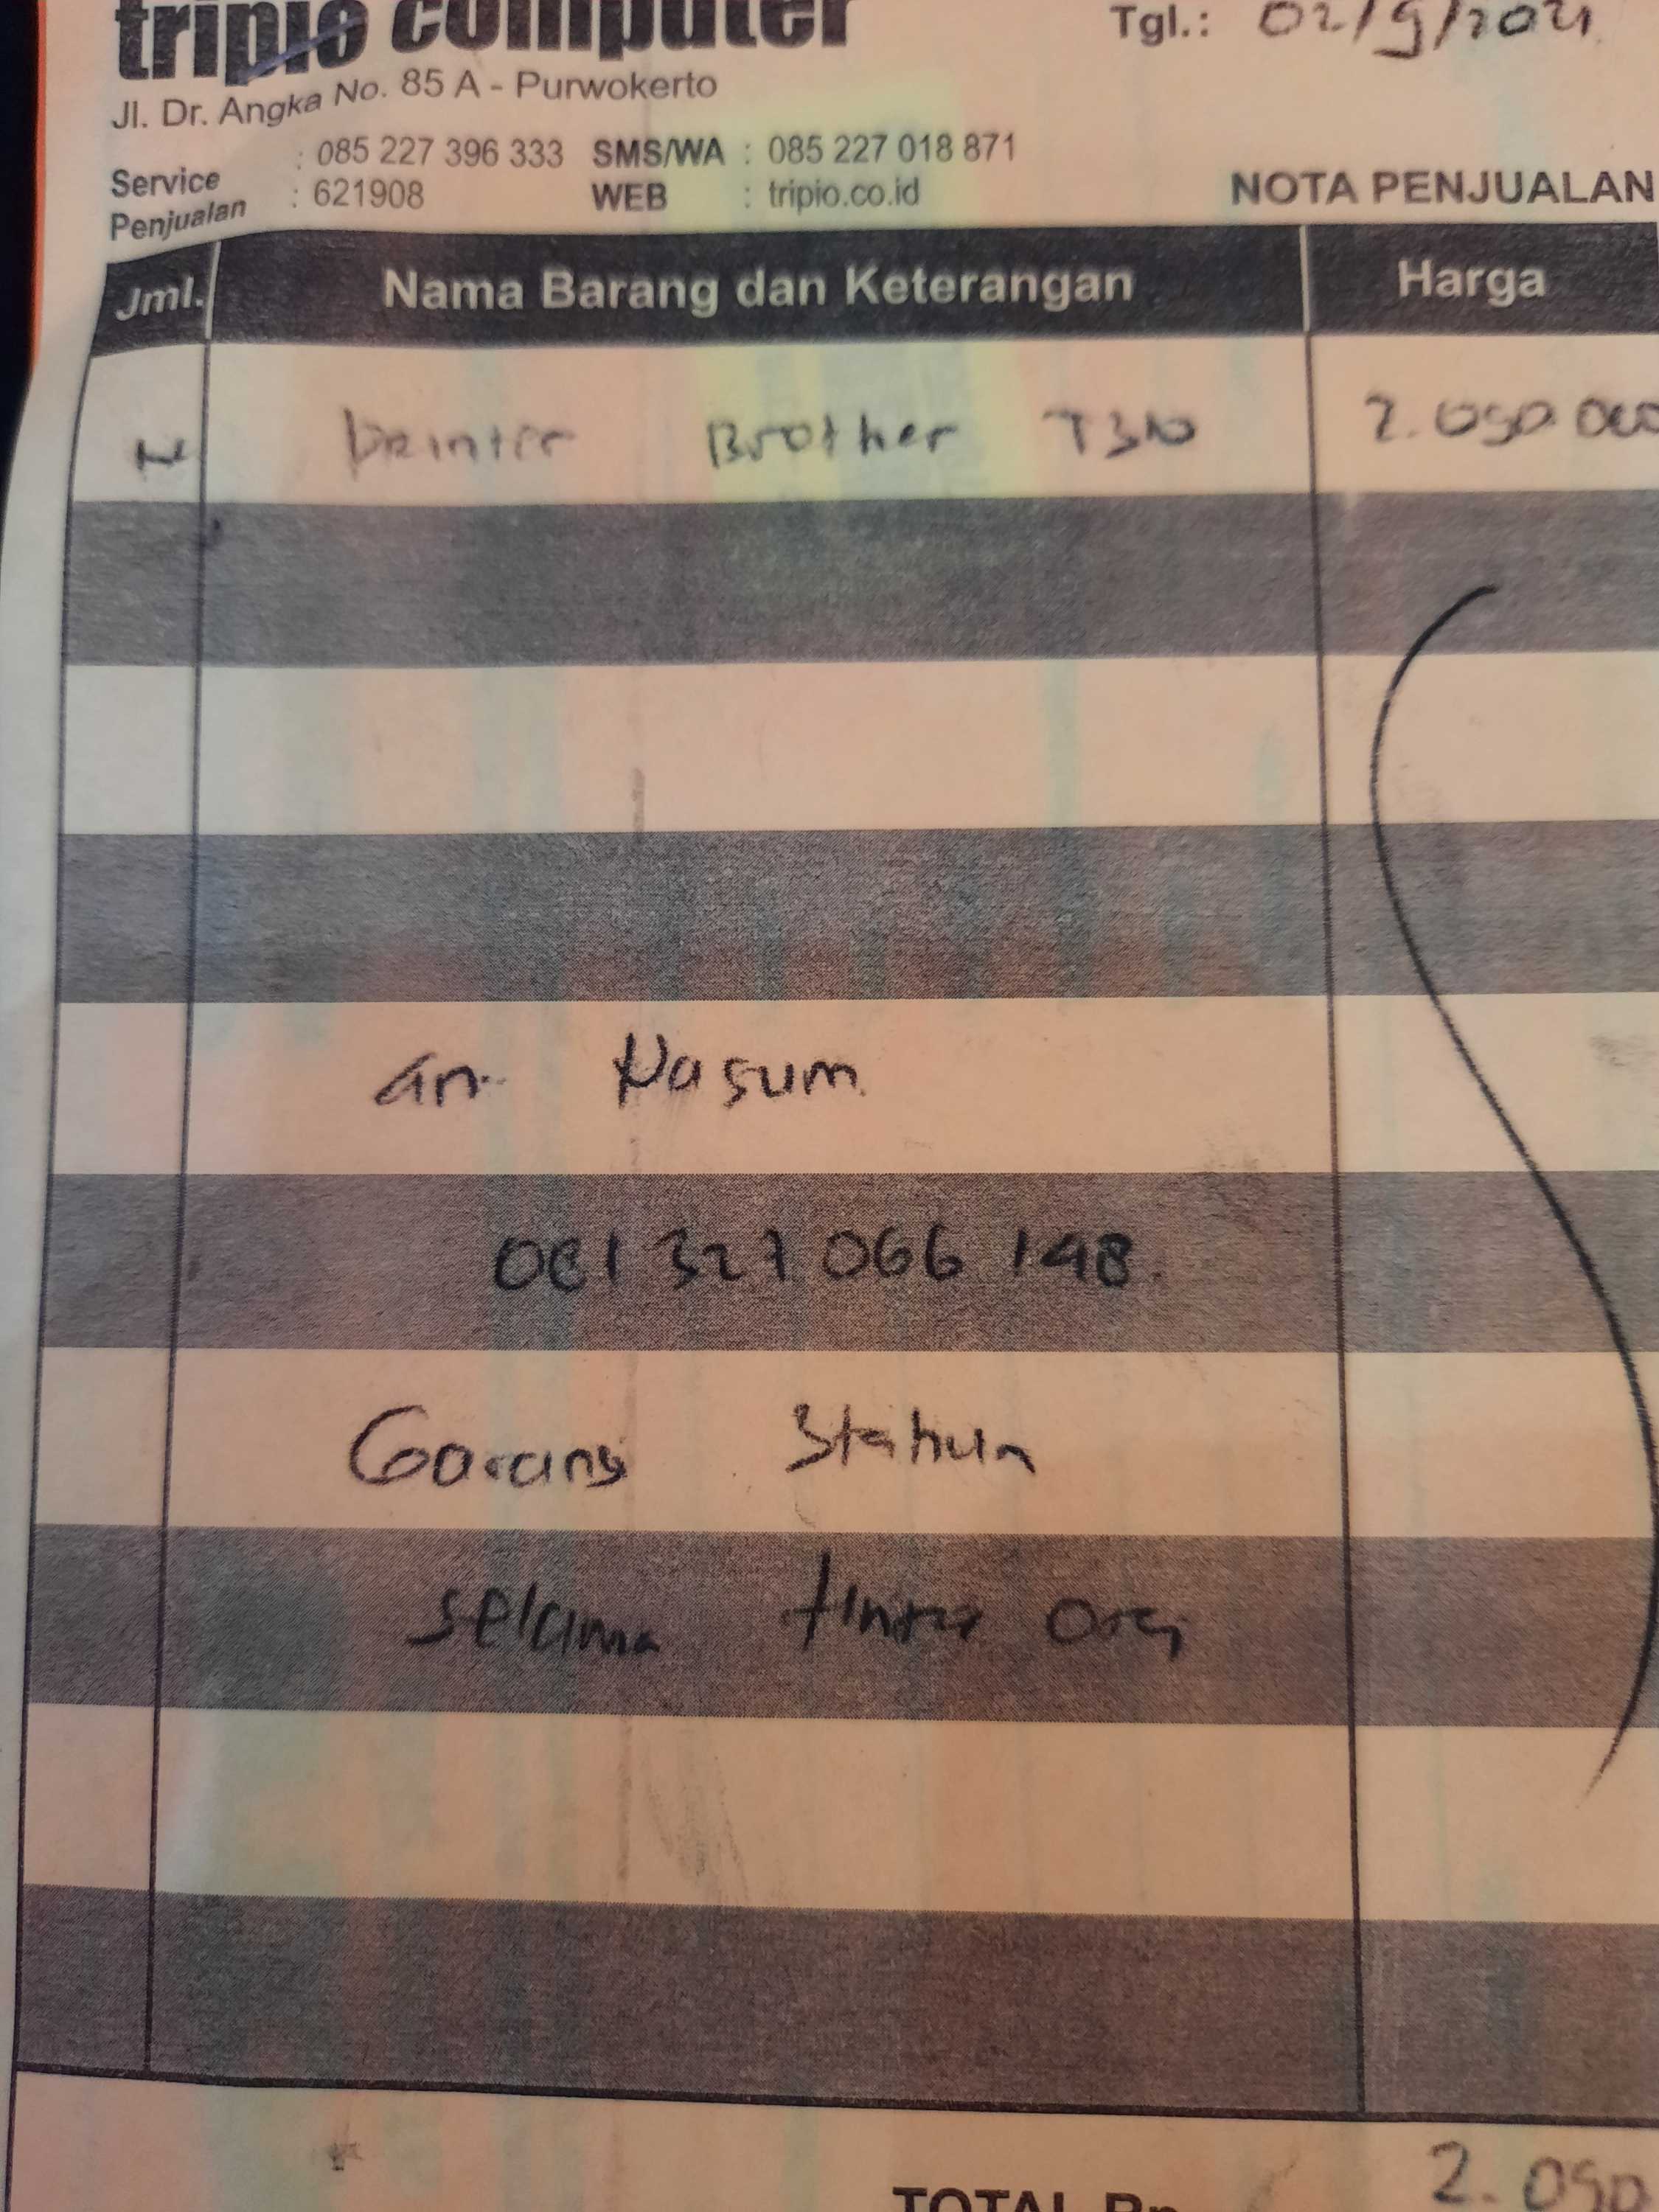 tripio computer
Tgl.: 02/9/2021
Jl. Dr. Angka No. 85 A - Purwokerto
Service : 085 227 396 333 SMS/WA : 085 227 018 871
Penjualan : 621908 WEB : tripio.co.id
NOTA PENJUALAN
Jml. Nama Barang dan Keterangan Harga
Printer Brother T310 2.050.000
an. Nasum
081 327 066 148.
Garansi 3tahun
selama tinta ori
2.050
TOTAL Rp